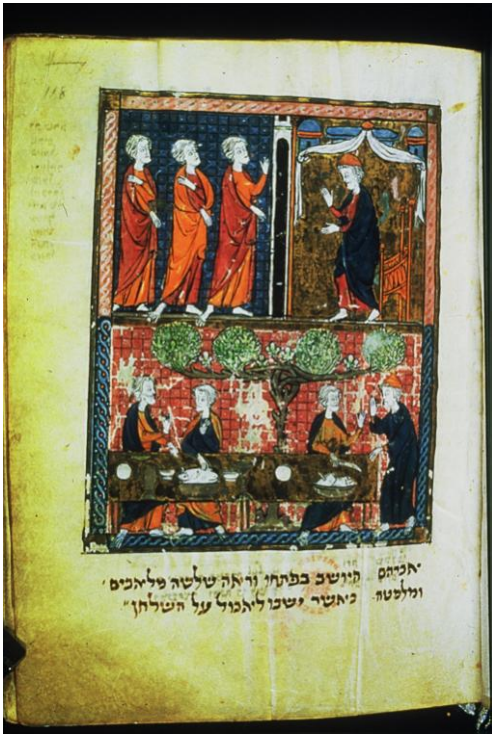 118
אברהם היושב בפתחו וראה שלשה מלאכים
ומלמטה כאשר ישבו לאכול על השלחן